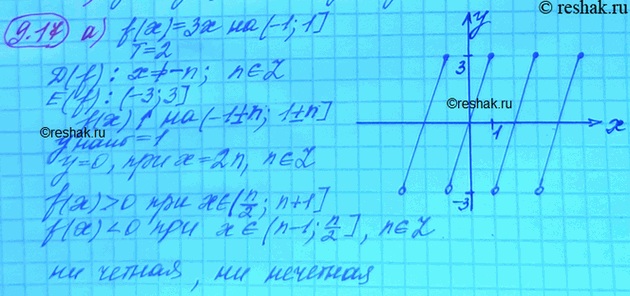 ©reshak.ru
9.17 а) f(x)=3x на (-1; 1]
T=2
D(f): x≠-n; n∈Z
E(f): (-3; 3]
f(x) ↑ на (-1±n; 1±n]
©reshak.ru
y наиб = 1
y=0, при x=2n, n∈Z
f(x)>0 при x∈(n/2; n+1]
f(x)<0 при x∈(n-1; n/2], n∈Z
ни четная, ни нечетная
y
3
©reshak.ru
1
x
-3
©reshak.ru